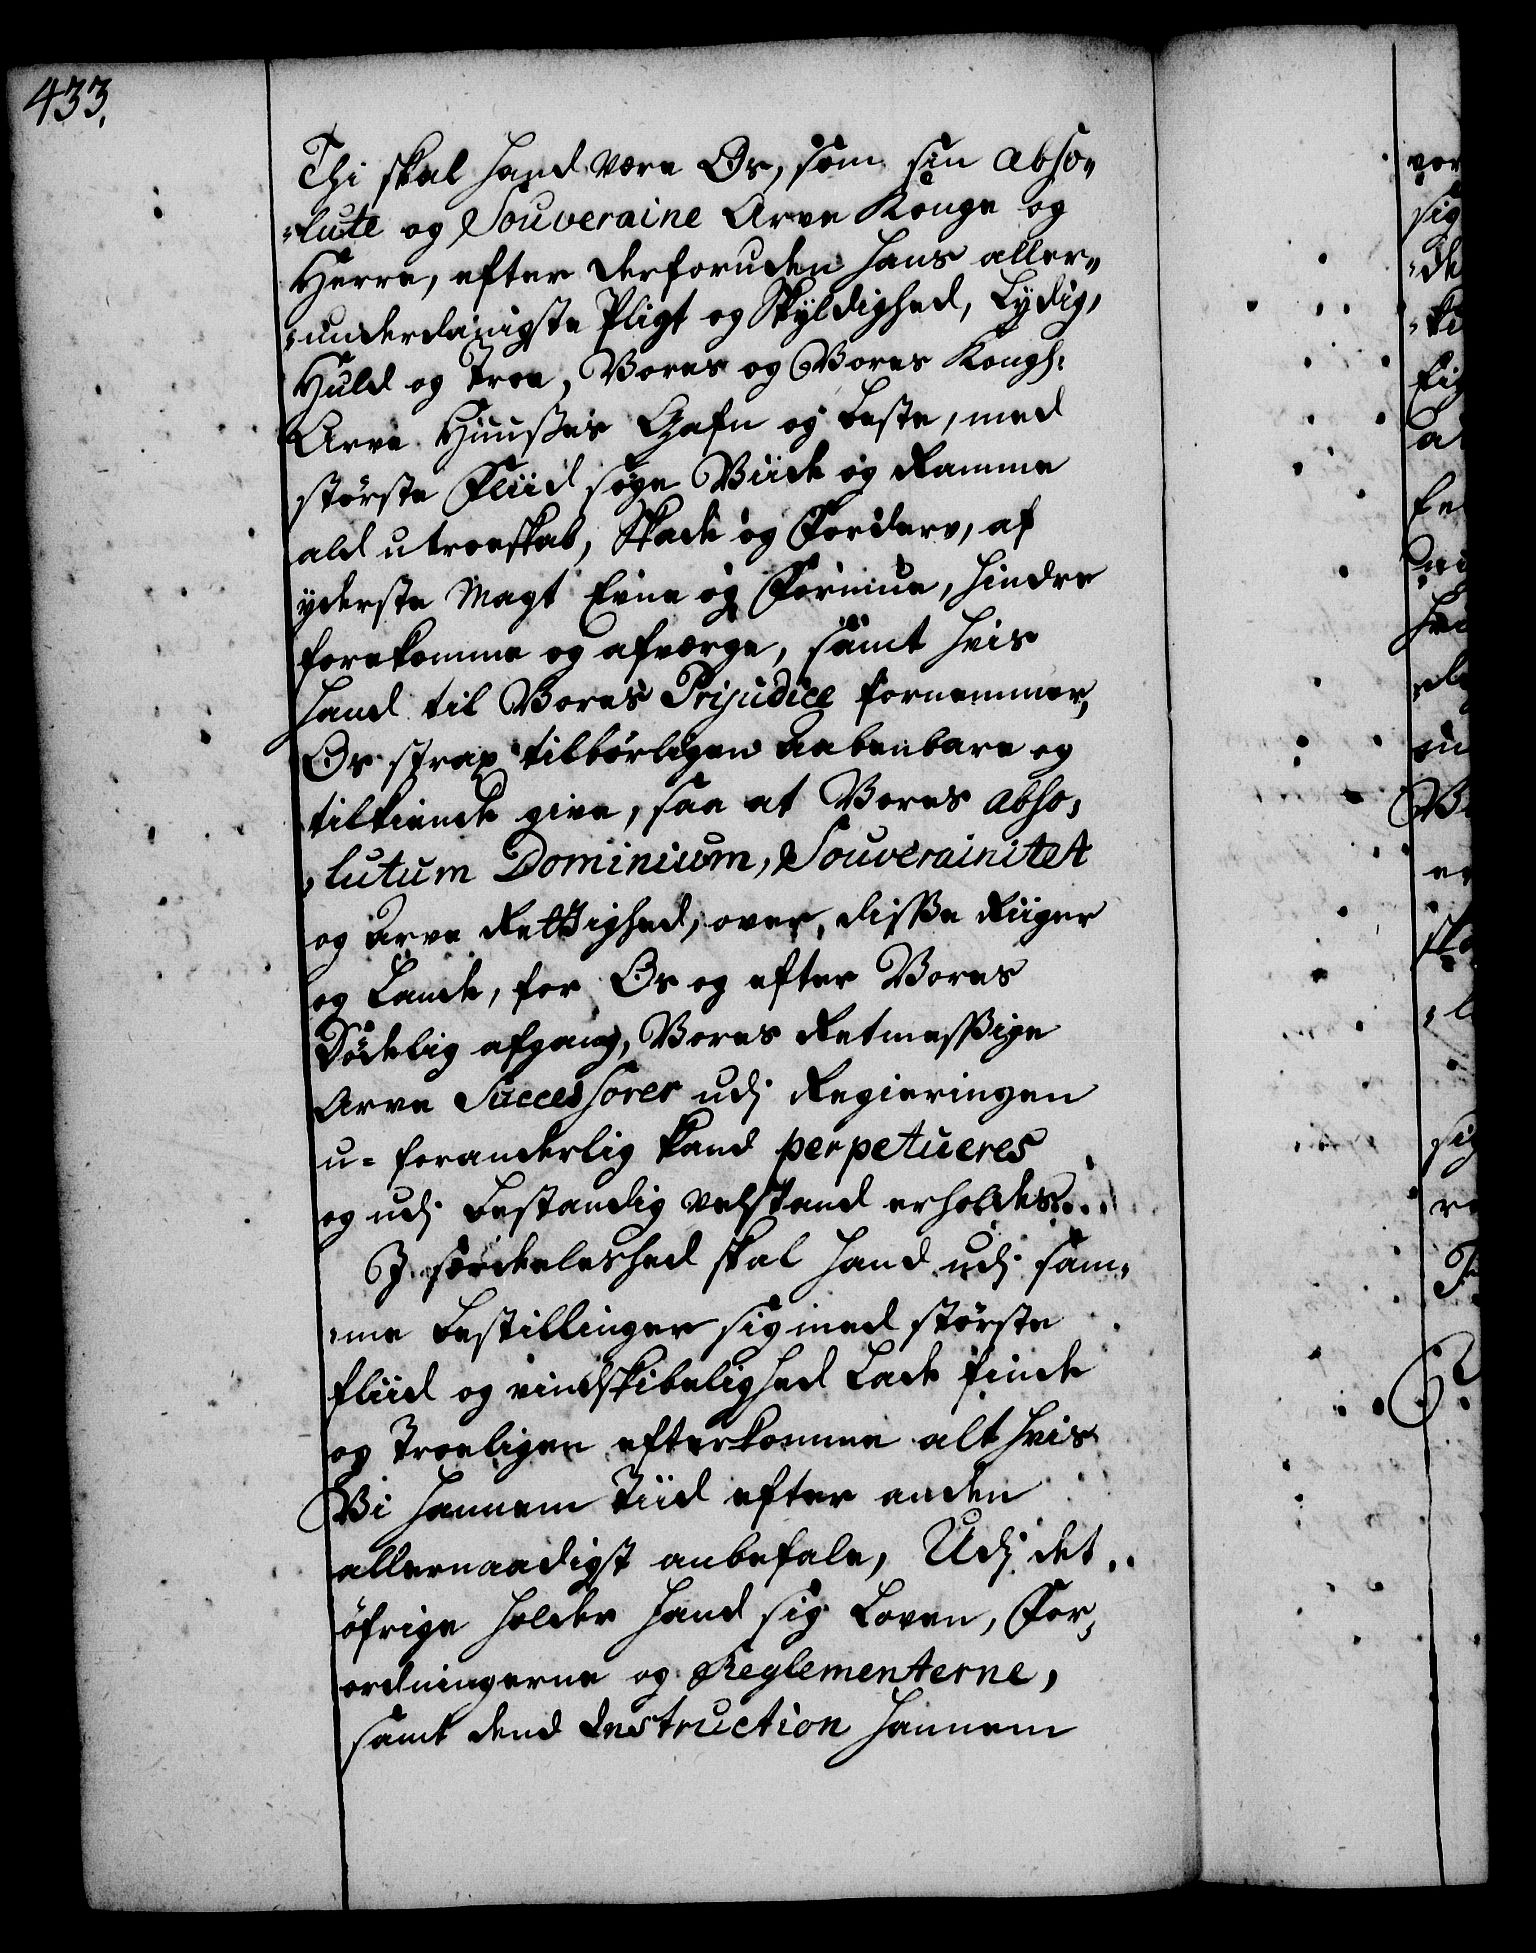 433.
Thi skal hand være Os, som sin abso„
„lute og Souveraine Arve Konge og
Herre, efter derforuden hans aller„
„underdanigste Pligt og Skyldighed, Lydig,
Huld og Troe, Vores og Vores Kongl:
Arve Huusses Gafn og beste, med
störste Fliid söge Viide og Ramme
ald utroeskab, Skade og Forderv, af
yderste Magt Evne og Formue, hindre
forekomme og afværge, samt hvis
hand til Vores Prijudice fornemmer,
Os strax tilbörligen aabenbare og
tilkiende give, saa at Vores abso„
„lutum Dominium, Souverainitet
og arve Rettighed, over, disse Riiger
og Lande, for Os og efter Vores
Dödelig afgang, Vores Retmessige
Arve Successorer udj Regieringen
u-foranderlig kand perpetueres
og udj bestandig velstand erholdes...
I særdeleshed skal hand udj sam„
„me bestillinger sig med störste
fliid og vindskibelighed lade finde
og Troeligen efterkomme alt hvis
Vi hannem Tiid efter anden
allernaadigst anbefale, Udj det
öfrige holder hand sig Loven, For„
ordningerne og Reglementerne,
samt dend Instruction hannem